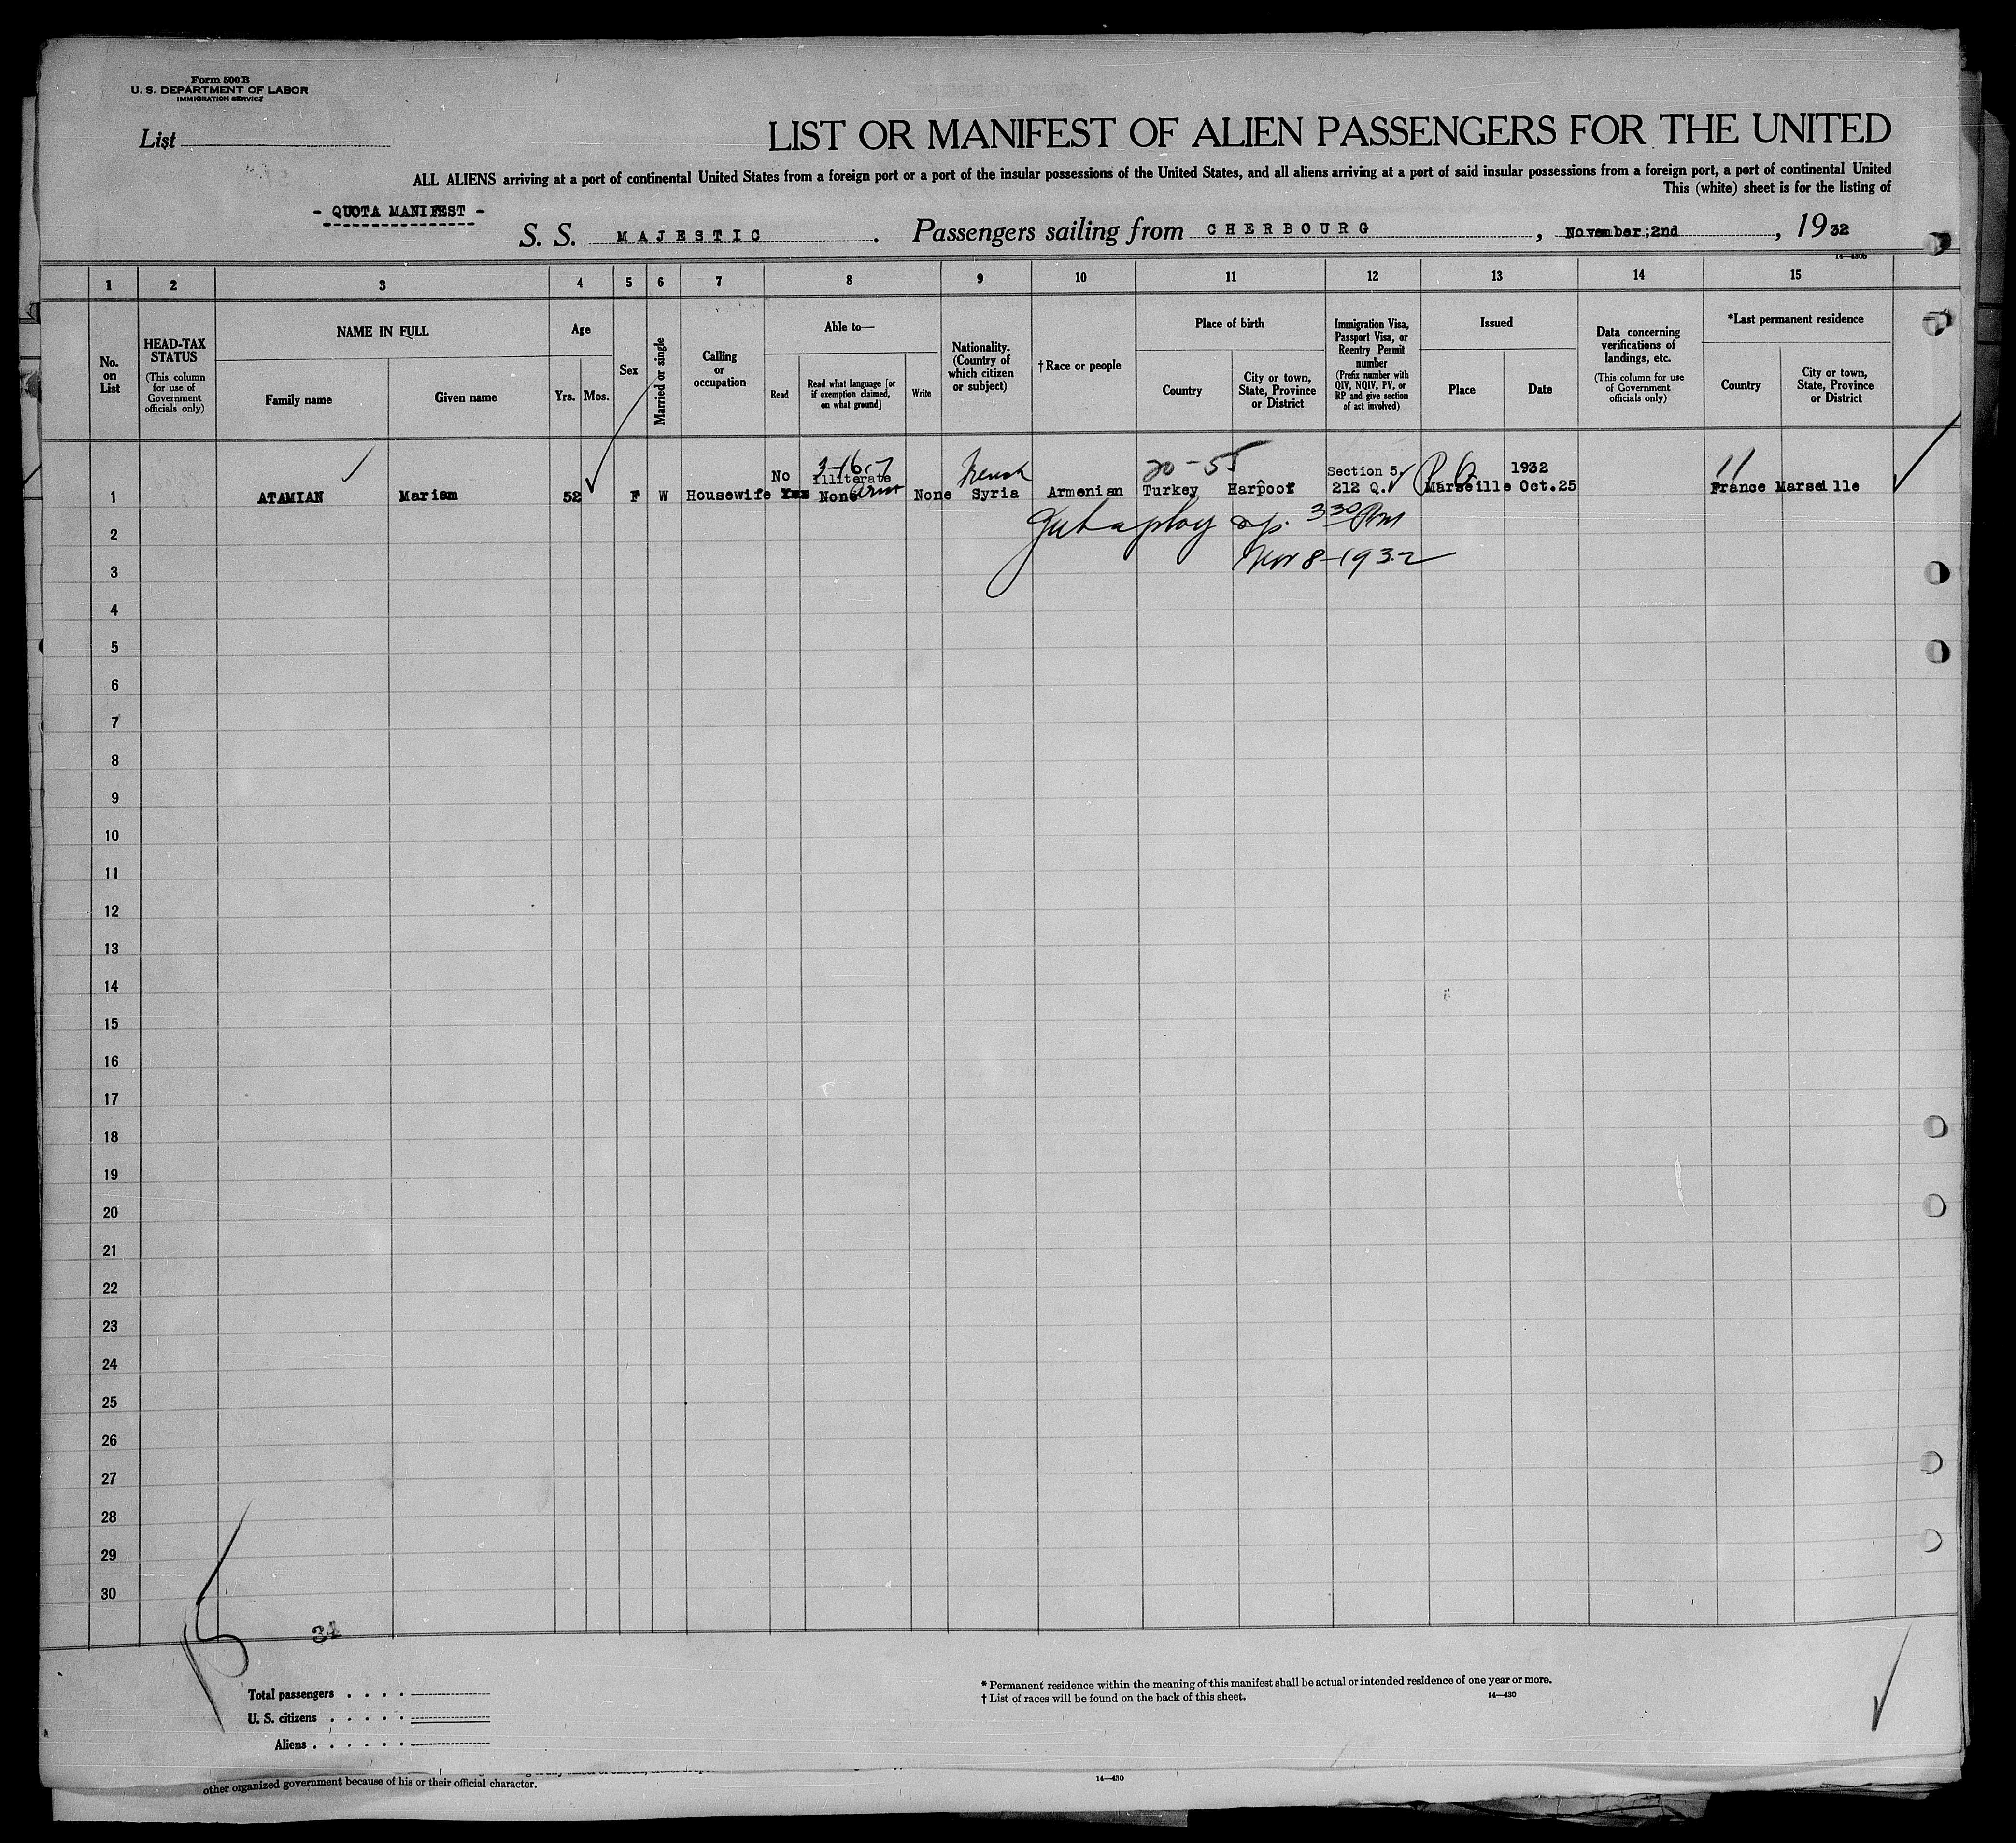 Form 500 B
U. S. DEPARTMENT OF LABOR
IMMIGRATION SERVICE
List
LIST OR MANIFEST OF ALIEN PASSENGERS FOR THE UNITED
ALL ALIENS arriving at a port of continental United States from a foreign port or a port of the insular possessions of the United States, and all aliens arriving at a port of said insular possessions from a foreign port, a port of continental United
This (white) sheet is for the listing of
- QUOTA MANIFEST -
S. S. MAJESTIC. Passengers sailing from CHERBOURG, November;2nd, 1932
14—430B
1 2 3 4 5 6 7 8 9 10 11 12 13 14 15
No. on List
HEAD-TAX STATUS
(This column for use of Government officials only)
NAME IN FULL
Family name
Given name
Age
Yrs.
Mos.
Sex
Married or single
Calling or occupation
Able to—
Read
Read what language [or if exemption claimed, on what ground]
Write
Nationality. (Country of which citizen or subject)
†Race or people
Place of birth
Country
City or town, State, Province or District
Immigration Visa, Passport Visa, or Reentry Permit number
(Prefix number with QIV, NQIV, PV, or RP and give section of act involved)
Issued
Place
Date
Data concerning verifications of landings, etc.
(This column for use of Government officials only)
*Last permanent residence
Country
City or town, State, Province or District
No 3-16-7 French 20-55 Section 5. 1932 11
Illiterate
1 ATAMIAN Mariam 52 F W Housewife Yes None Arm None Syria Armenian Turkey Harpoot 212 Q. Marseille Oct.25 France Marseille
2 3 30 PM
3 Nov 8-1932
4
5
6
7
8
9
10
11
12
13
14
15
16
17
18
19
20
21
22
23
24
25
26
27
28
29
30
Total passengers . . . .
U. S. citizens . . . . .
Aliens . . . . . .
* Permanent residence within the meaning of this manifest shall be actual or intended residence of one year or more.
† List of races will be found on the back of this sheet.
14—430
other organized government because of his or their official character.
14—430